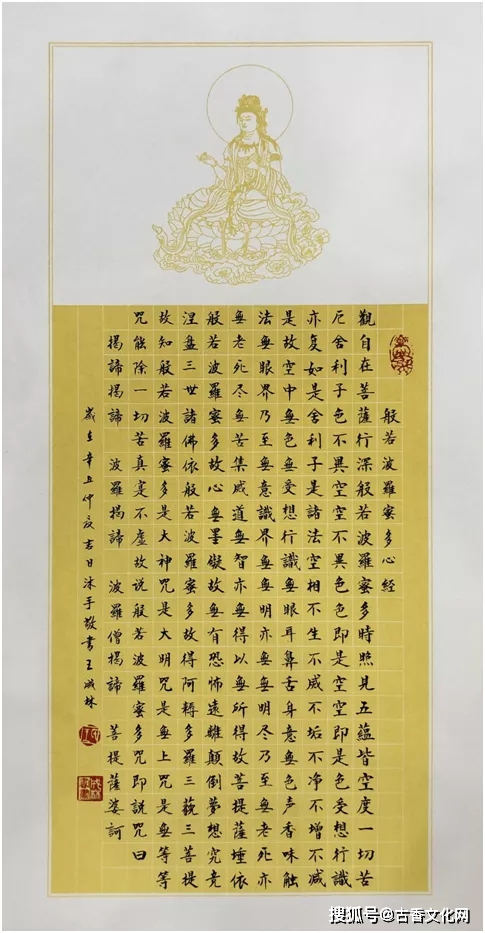 般若波羅蜜多心经
觀自在菩薩行深般若波羅蜜多時照見五蘊皆空度一切苦
厄舍利子色不異空空不異色色即是空空即是色受想行識
亦复如是舍利子是諸法空相不生不滅不垢不净不增不减
是故空中無色無受想行識無眼耳鼻舌身意無色声香味触
法無眼界乃至無意識界無無明亦無無明尽乃至無老死亦
無老死尽無苦集滅道無智亦無得以無所得故菩提薩埵依
般若波羅蜜多故心無罣礙故無有恐怖遠離顛倒夢想究竟
涅盘三世諸佛依般若波羅蜜多故得阿耨多羅三藐三菩提
故知般若波羅蜜多是大神咒是大明咒是無上咒是無等等
咒能除一切苦真实不虚故说般若波羅蜜多咒即説咒曰
揭諦揭諦 波羅揭諦 波羅僧揭諦 菩提薩婆訶
歲在辛丑仲夏吉日沐手敬書王成林
搜狐号@古香文化网